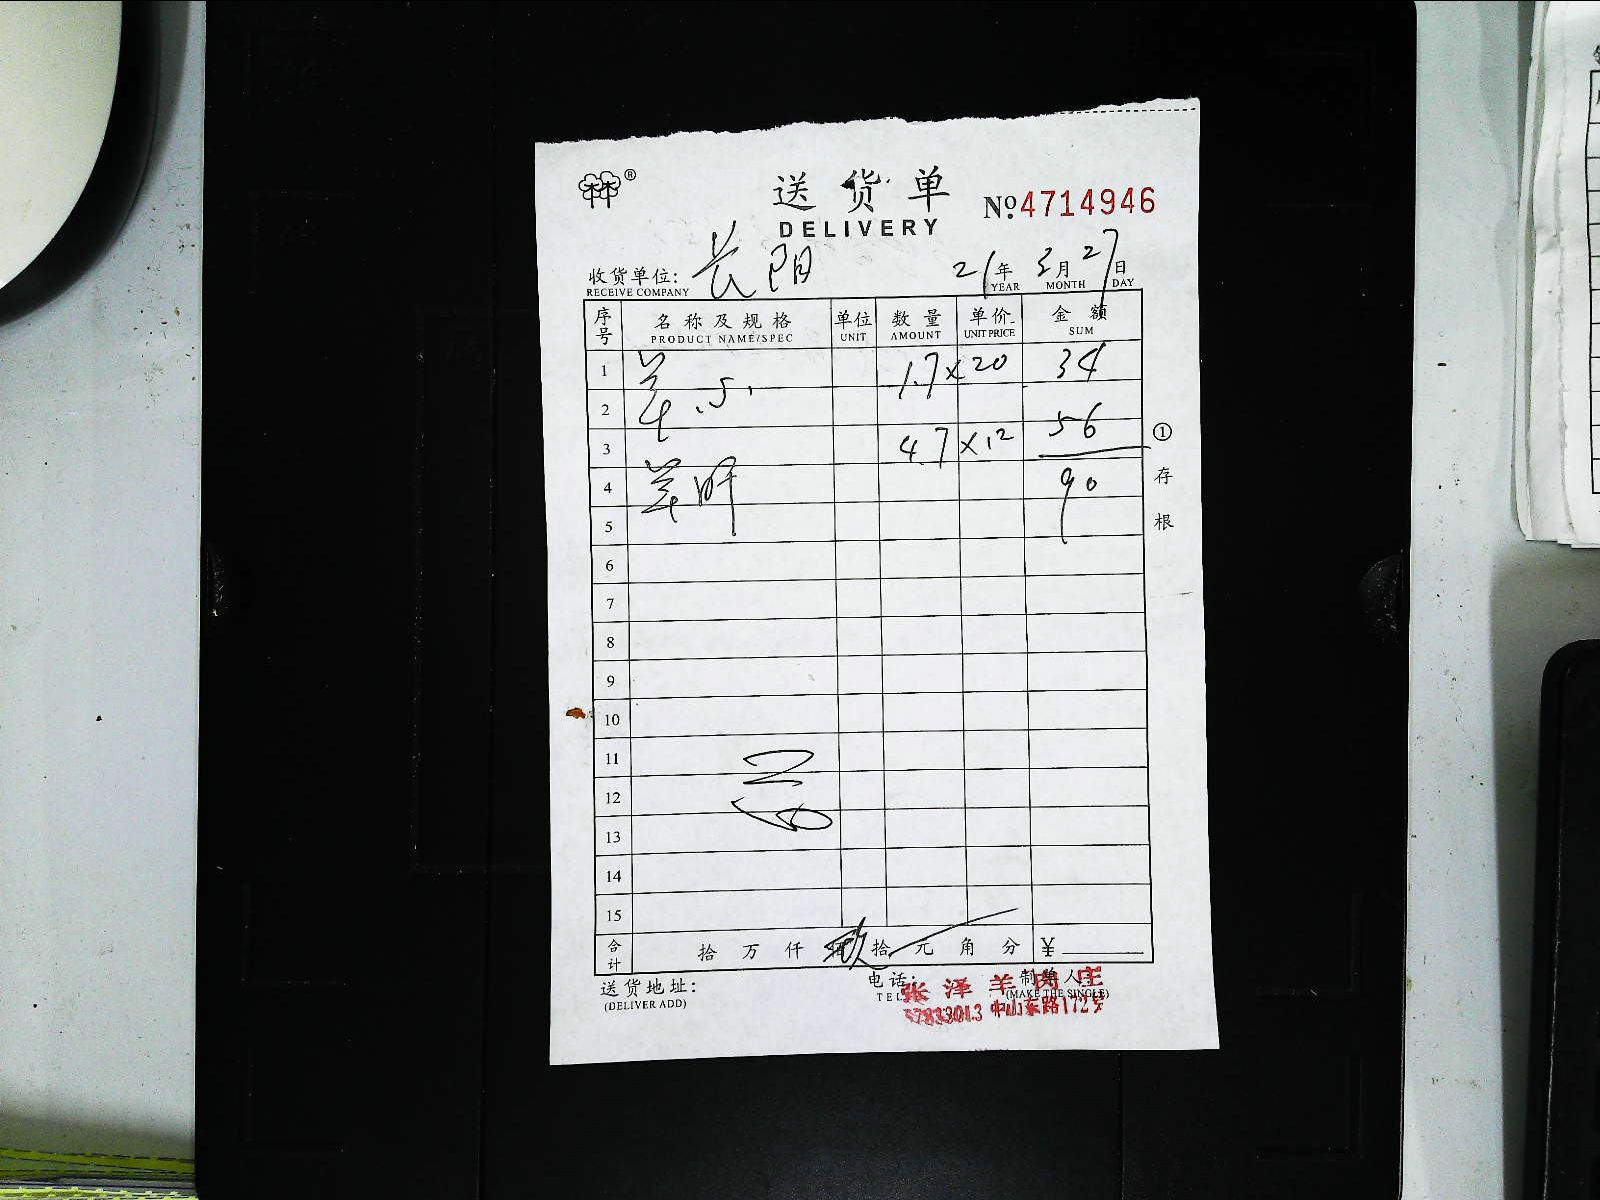 林®
送货单
DELIVERY
№4714946
收货单位: 长阳 21年 3月 27日
RECEIVE COMPANY YEAR MONTH DAY
序号 名称及规格 单位 数量 单价 金额
PRODUCT NAME/SPEC UNIT AMOUNT UNIT PRICE SUM
1 羊心 1.7×20 34
2
3 4.7×12 56
4 羊肝 90
5
6
7
8
9
10
11
12
13
14
15
合计 拾 万 仟 佰 玖拾 元 角 分 ¥
①存根
送货地址: 电话: 制单人:
(DELIVER ADD) TEL: (MAKE THE SINGLE)
张泽羊肉庄
57833013 中山东路172号